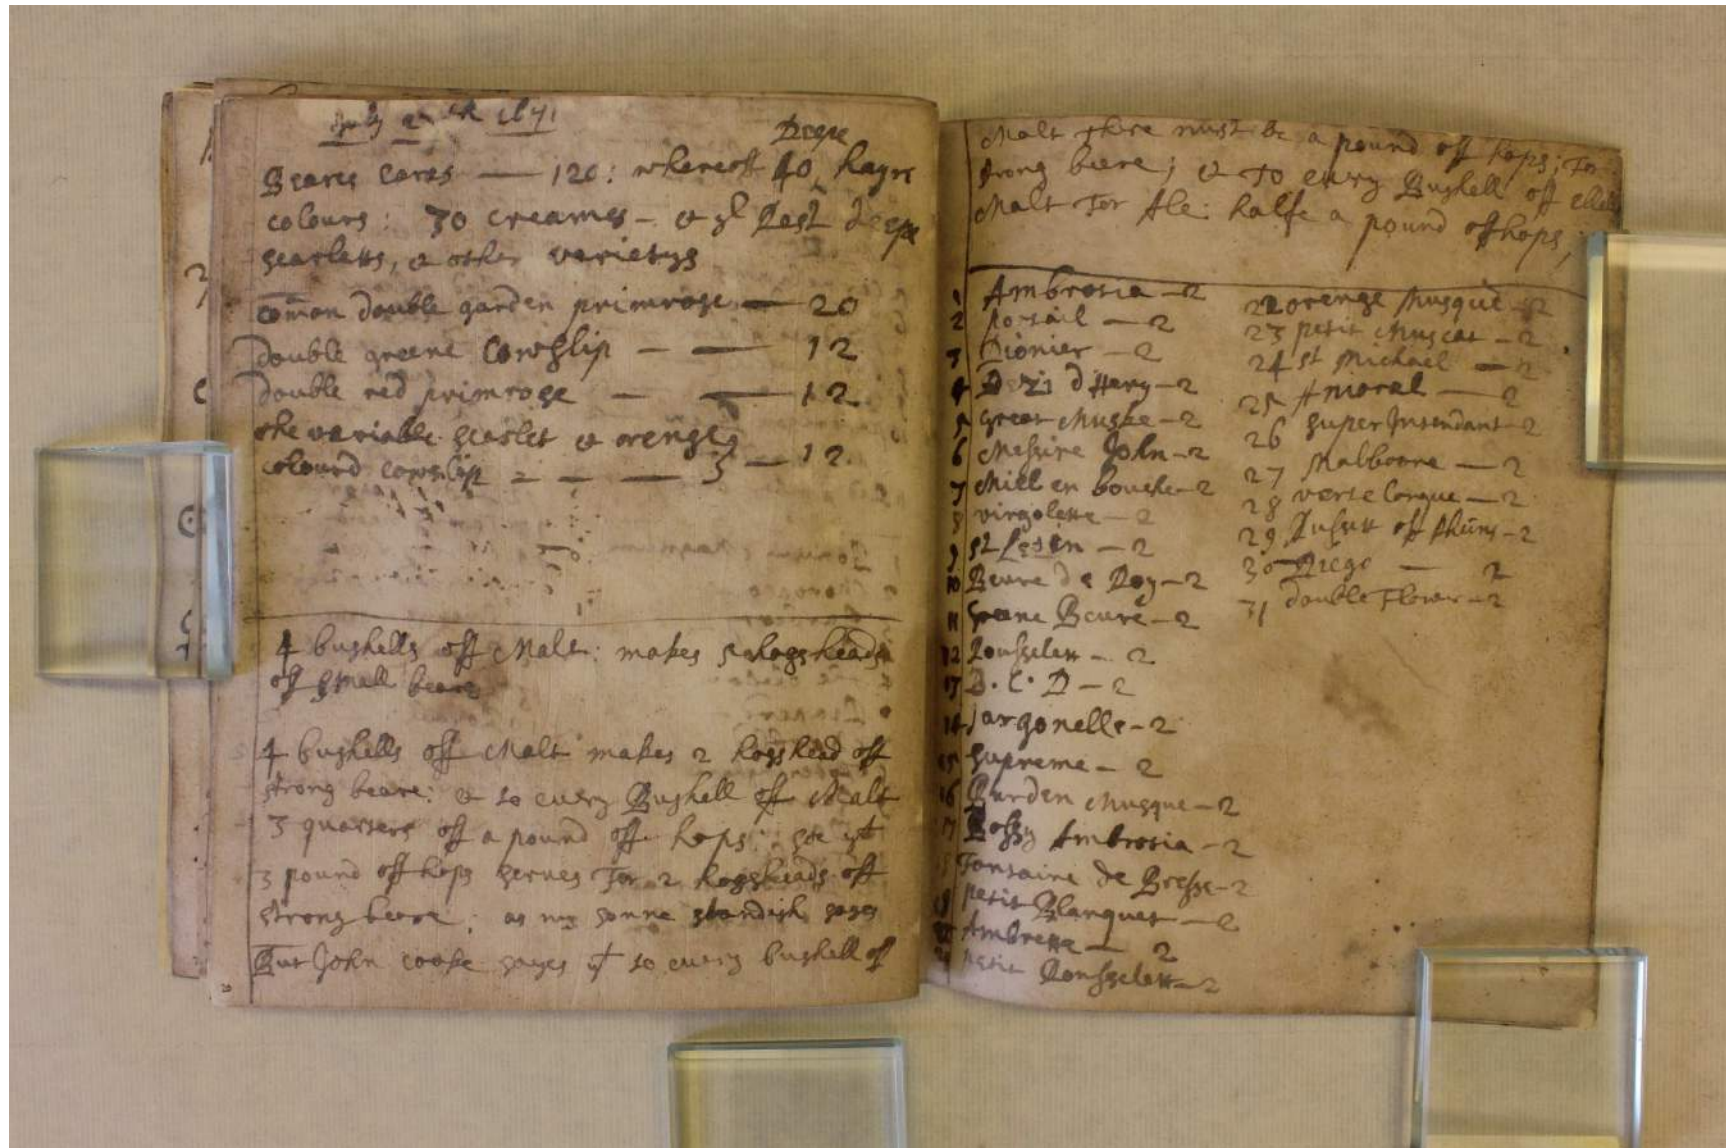 July 2 th 1671
Deepe
Beares eares — 120: whereoff 40 hayre
colours: 30 creames - & ye Rest deepe
scarletts, & other varietys
Common double garden primrose — 20
double greene Cowslip — — 12
double red primrose — — 12
the variable scarlet & orenge
colourd cowslip - - — 3 — 12
4 bushells off Malt: makes hogsheads
off small beare
4 bushells off Malt makes 2 hogshead off
strong beare: & to every Bushell off Malt
3 quarters off a pound off hops: soe yt
3 pound off hops serves for 2 hogsheads off
strong beare; as my sonne standish sayes
But John cooke sayes yt to every bushell off
Malt there must be a pound off hops; for
strong beere; & to every Bushell off
Malt for Ale: halfe a pound off hops;
1 Ambrosia - 2
2 portail — 2
3 Pionier — 2
4 d'Hery - 2
5 great Muske - 2
6 Messire John - 2
7 Mill en bouche - 2
8 virgolette - 2
9 St Lesin — 2
10 Beure de Roy - 2
11 Greene Beure - 2
12 Rousselett - 2
13 B. C. D - 2
14 Jargonelle - 2
15 Supreme - 2
16 Burden Musque - 2
17 Bossy Ambrosia - 2
18 Fontaine de Bresse - 2
19 petit Blanquet - 2
Ambrette — 2
petit Rousselett - 2
22 orenge Musque - 2
23 petit Muscat - 2
24 St Michael — 2
25 Amoral — 2
26 Super Intendant - 2
27 Malboore — 2
28 verte Longue — 2
29 Russett off Rheims - 2
30 — 2
31 double Flower - 2